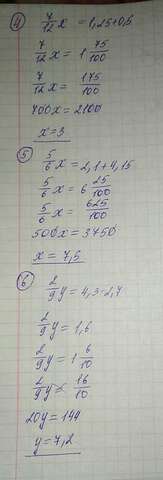 ④ 7/12 x = 1,25+0,5
7/12 x = 1 75/100
7/12 x = 175/100
700x = 2100
x=3
⑤ 5/6 x = 2,1+4,15
5/6 x = 6 25/100
5/6 x = 625/100
500x = 3750
x = 7,5
⑥ 2/9 y = 4,3-2,7
2/9 y = 1,6
2/9 y = 1 6/10
2/9 y = 16/10
20y = 144
y = 7,2